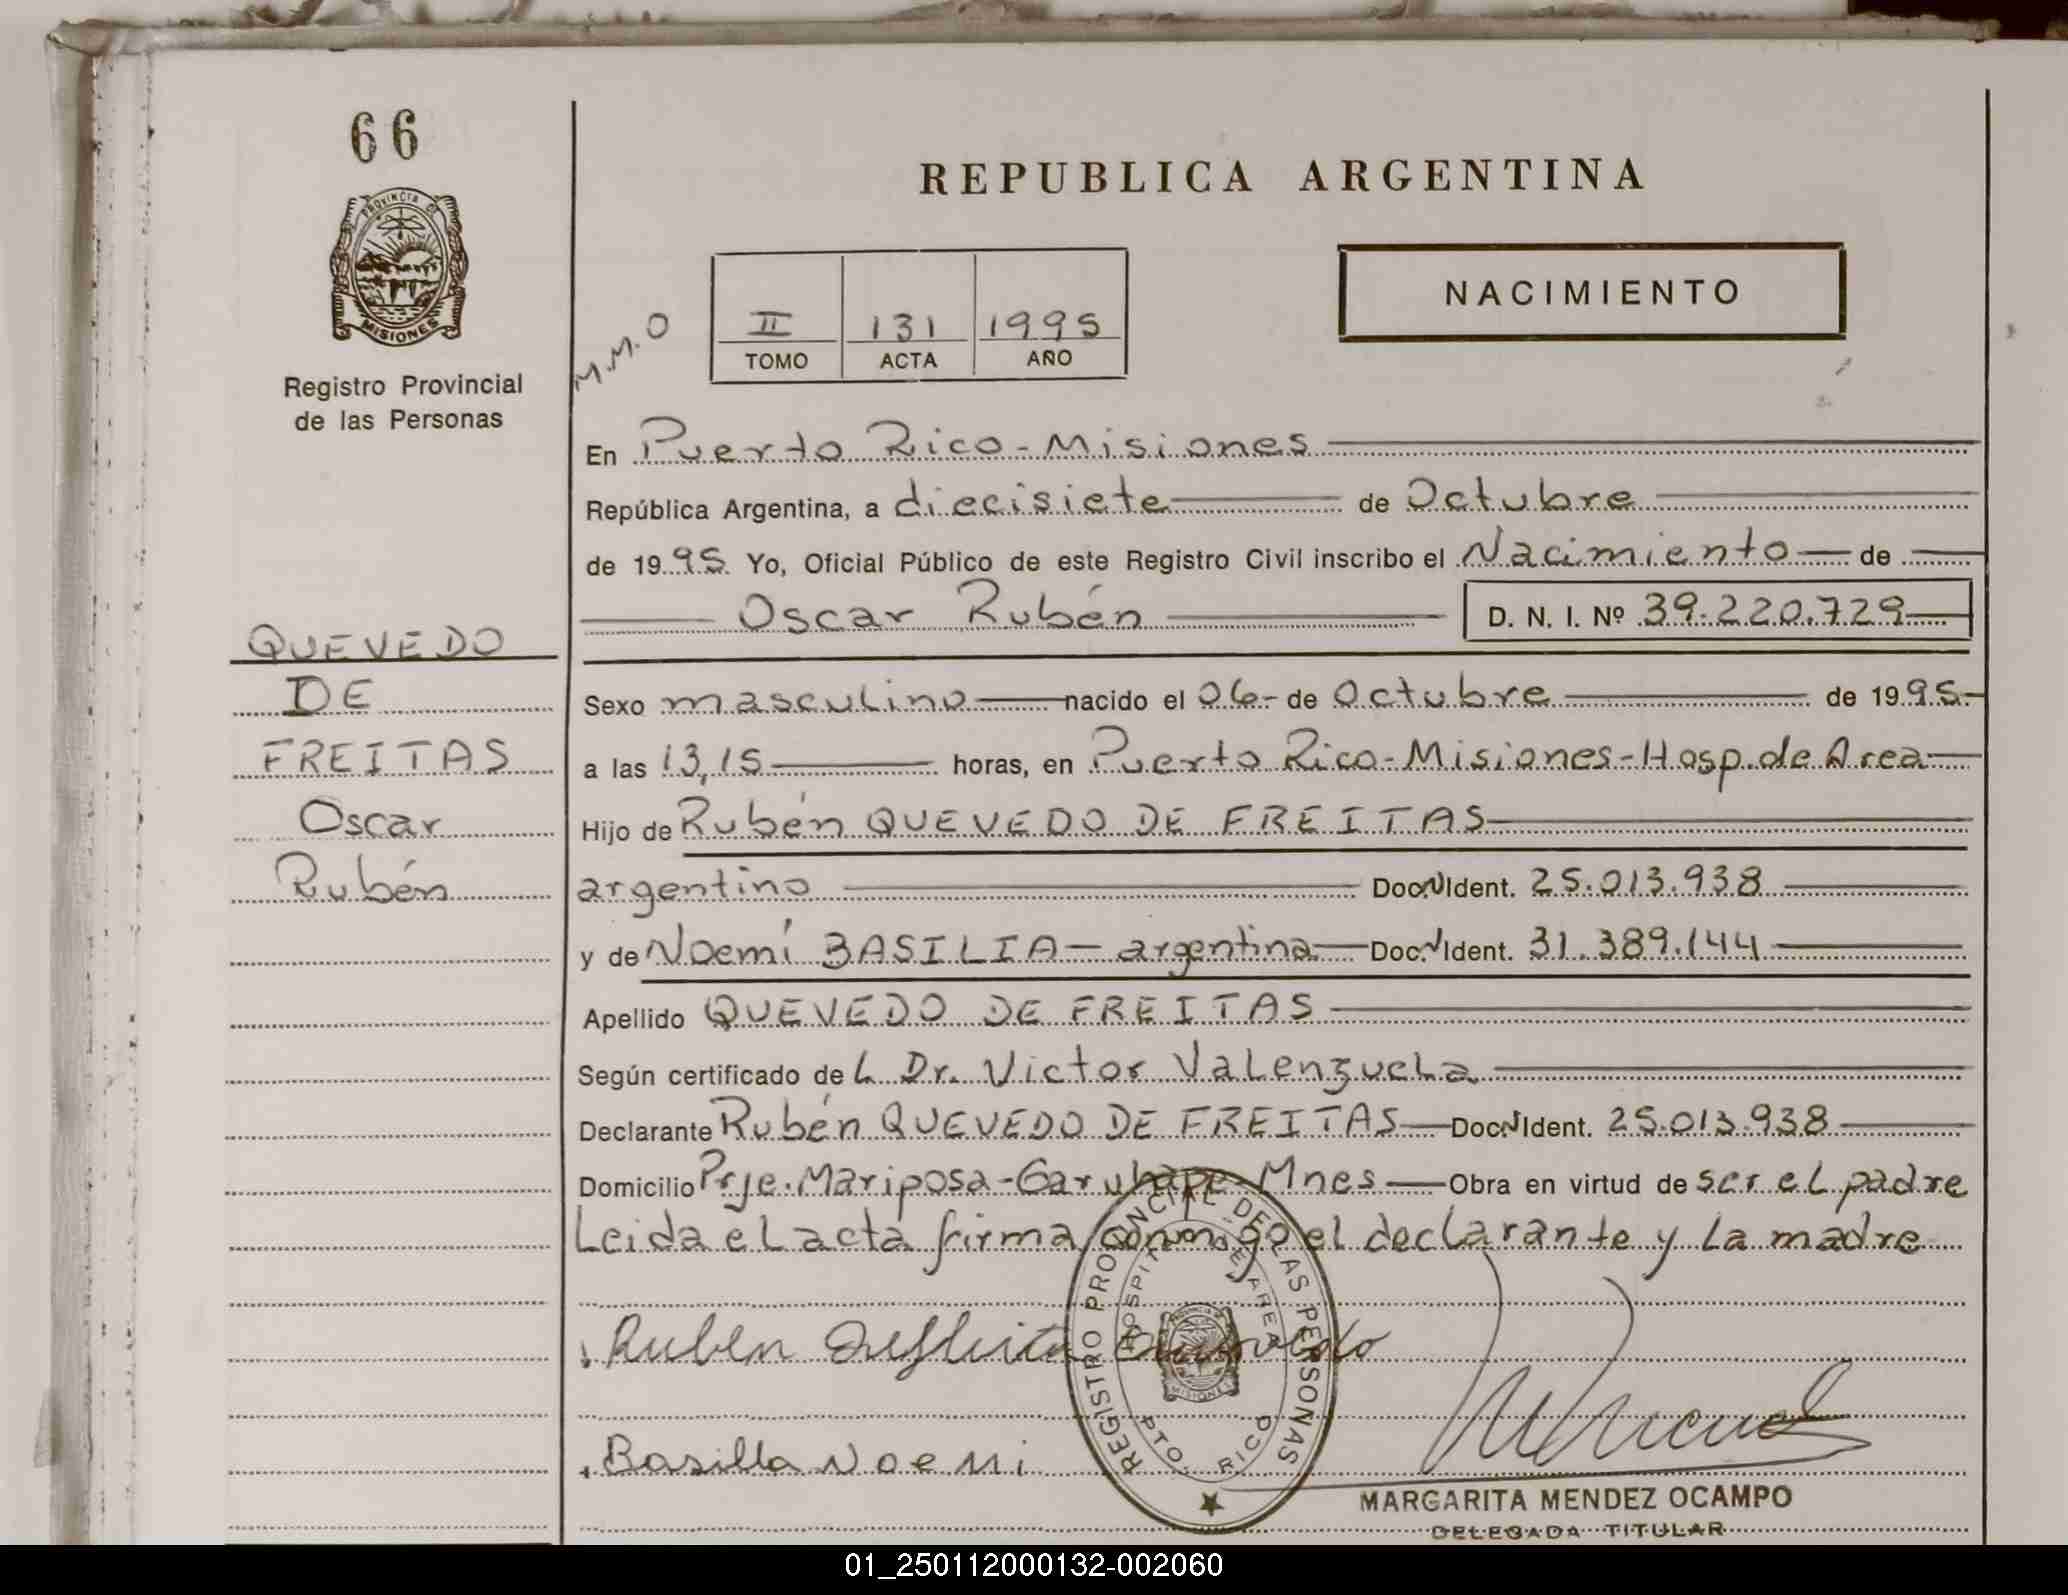 66
PROVINCIA DE
MISIONES
Registro Provincial
de las Personas
QUEVEDO
DE
FREITAS
Oscar
Rubén
REPUBLICA ARGENTINA
NACIMIENTO
M.M.O
II 131 1995
TOMO ACTA AÑO
En Puerto Rico - Misiones
República Argentina, a diecisiete de Octubre
de 1995 Yo, Oficial Público de este Registro Civil inscribo el Nacimiento de
Oscar Rubén D. N. I. Nº 39.220.729
Sexo masculino nacido el 06- de Octubre de 1995.-
a las 13,15 horas, en Puerto Rico-Misiones-Hosp.de Area
Hijo de Rubén QUEVEDO DE FREITAS
argentino Doc.N Ident. 25.013.938
y de Noemí BASILIA - argentina Doc.N Ident. 31.389.144
Apellido QUEVEDO DE FREITAS
Según certificado del Dr. Victor Valenzuela
Declarante Rubén QUEVEDO DE FREITAS Doc.N Ident. 25.013.938
Domicilio Prje. Mariposa - Garuhape - Mnes Obra en virtud de ser el padre
Leida el acta firma conmigo el declarante y la madre
REGISTRO PROVINCIAL DE LAS PERSONAS
HOSPITAL DE AREA
PTO. RICO
MISIONES
Ruben
Basilla Noemi
MARGARITA MENDEZ OCAMPO
DELEGADA TITULAR
01_250112000132-002060